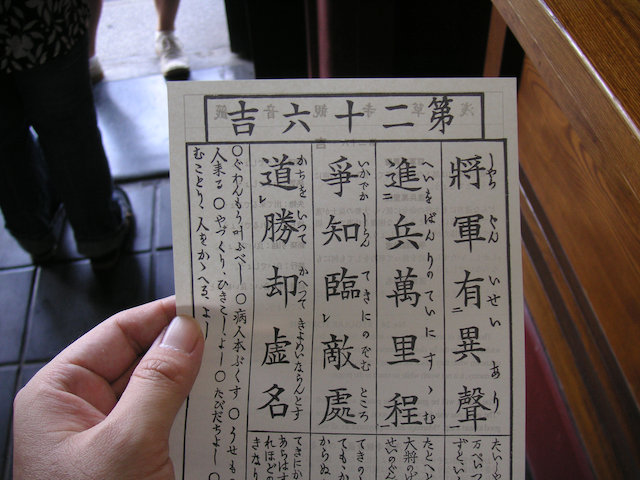 第二十六吉
將軍有異聲
いせい あり
進兵萬里程
へいをばんりのていにすゝむ
爭知臨敵處
いかでか しらん てきにのぞむ ところ
道勝却虚名
かちをいつて かへつて きよめいならんとす
〇ぐわんもう叶ふべし 〇病人本ぶくす 〇うせも
人来る 〇やづくり、ひきこしよし 〇たびだちよし 〇
むことり、人をかゝへる、よし
たとへと
大将のげ
せいのぐん
てきのく
ても、か
からぬ
てきにか
れほどの
きなり